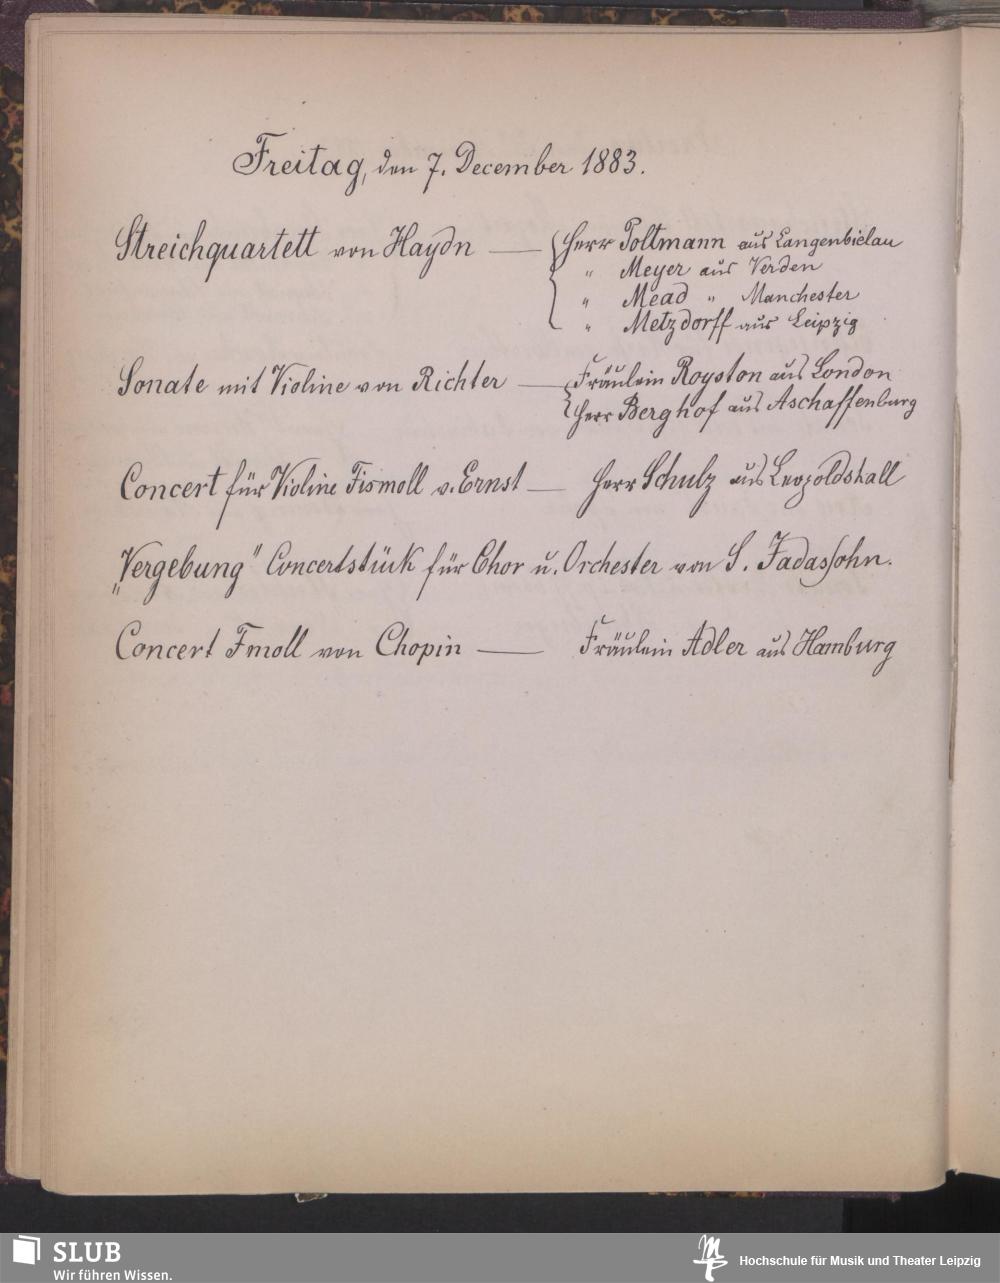 Freitag, den 7. December 1883.
Streichquartett von Haydn — Herr Poltmann aus Langenbielau
" Meyer aus Verden
" Mead " Manchester
" Metzdorff aus Leipzig
Sonate mit Violine von Richter — Fräulein Royston aus London
Herr Berghof aus Aschaffenburg
Concert für Violine Fismoll v. Ernst — Herr Schulz aus Leopoldshall
„Vergebung" Concertstück für Chor u. Orchester von S. Jadassohn.
Concert Fmoll von Chopin — Fräulein Adler aus Hamburg
SLUB
Wir führen Wissen.
Hochschule für Musik und Theater Leipzig